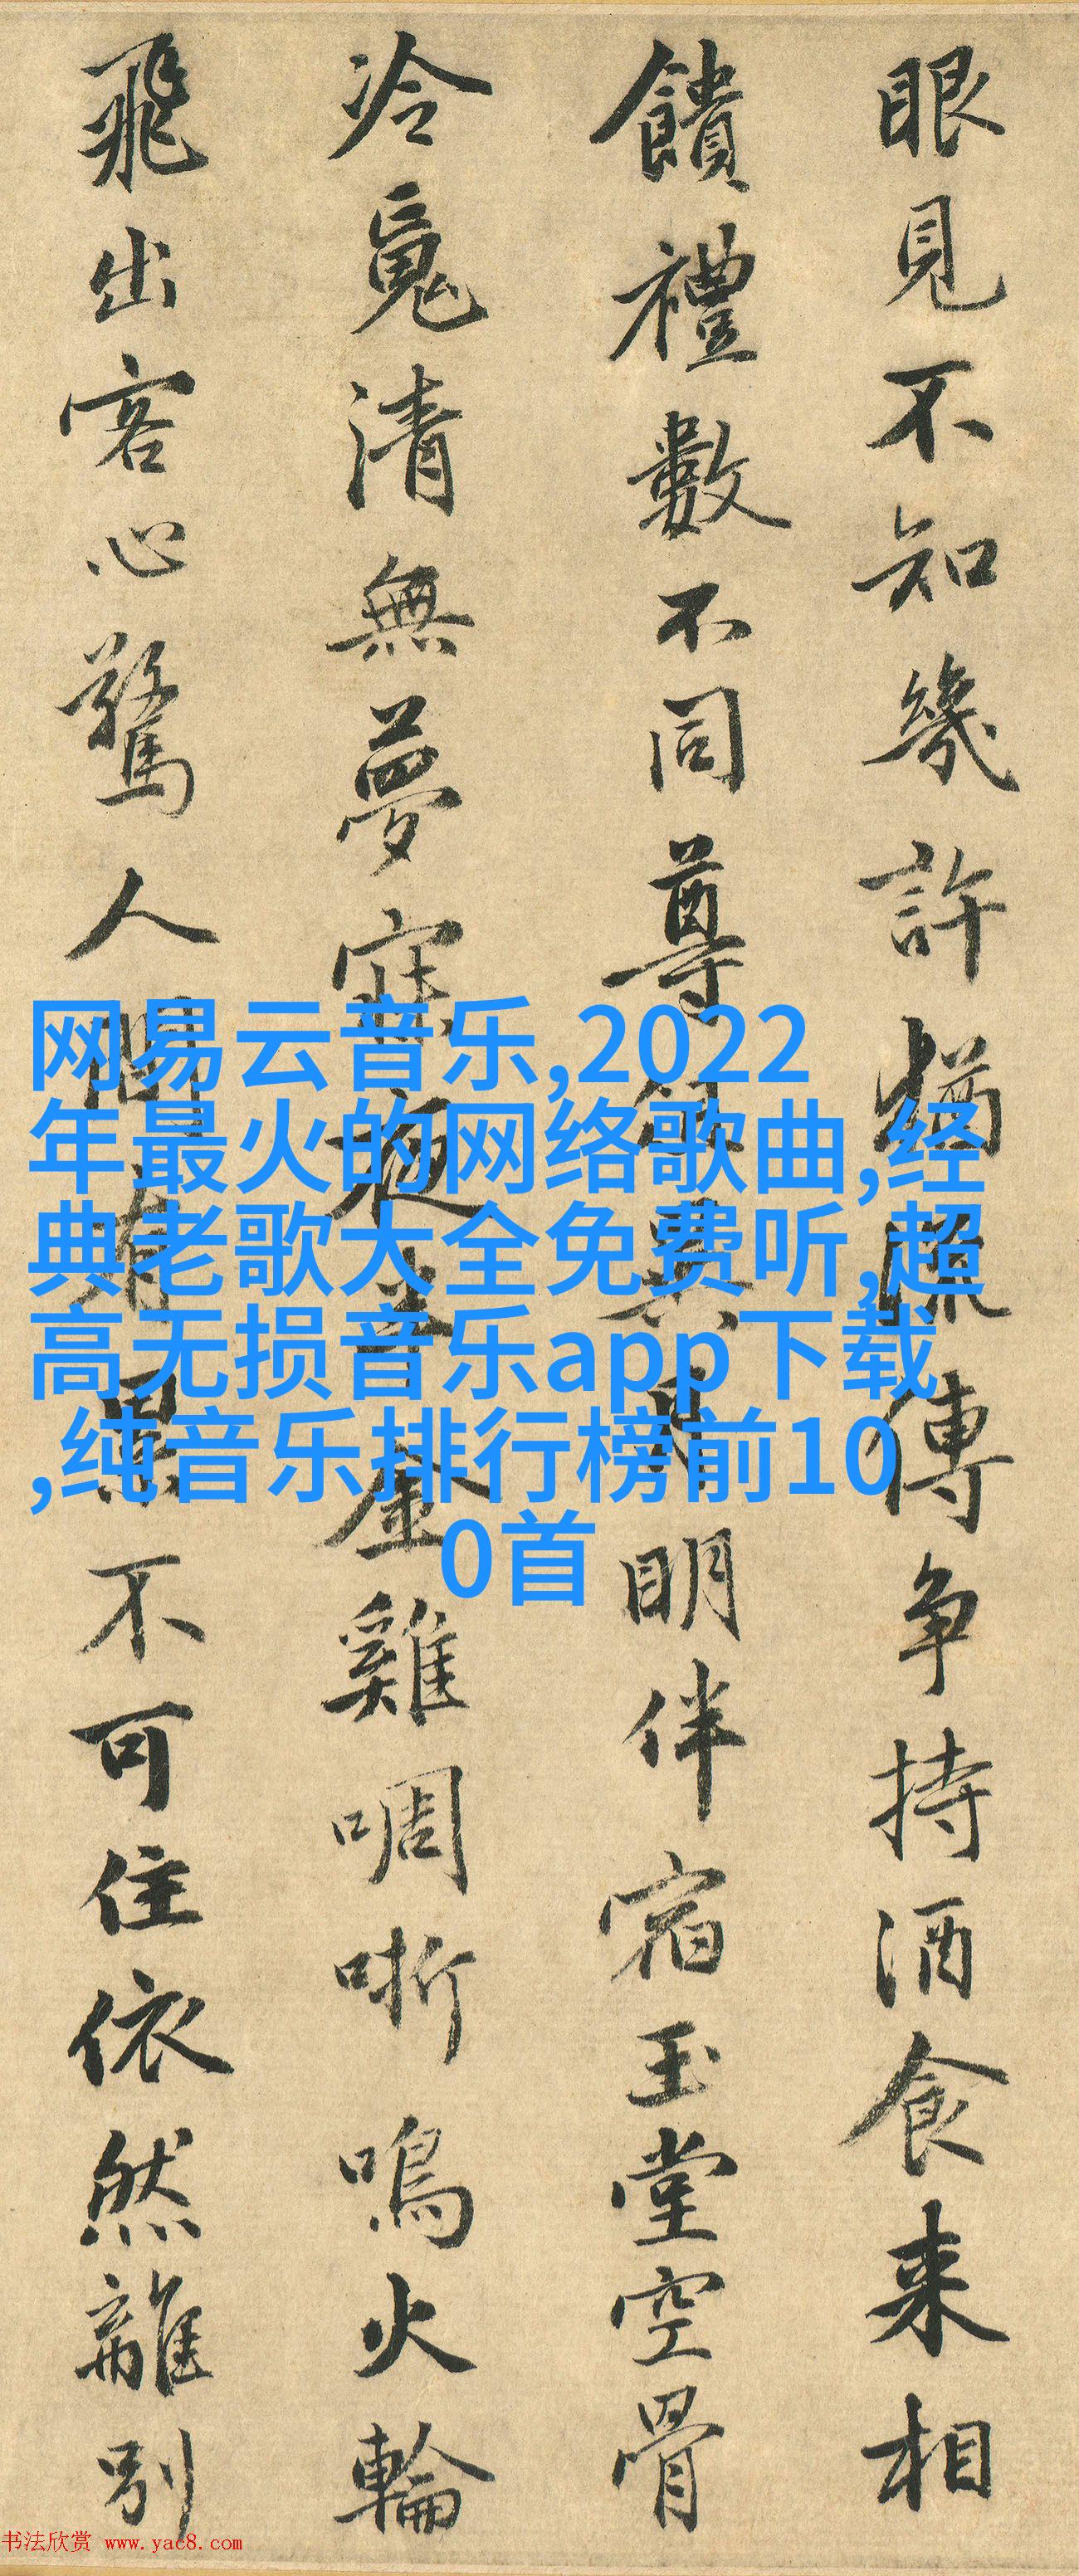 眼見不知幾許猶流傳争持酒食来相
饋禮數不同尊俎異月明伴宿玉堂空骨
冷魂清無夢寐夜半金雞啁哳鳴火輪
飛出客心驚人間有累不可住依然離别
网易云音乐,2022
年最火的网络歌曲,经
典老歌大全免费听,超
高无损音乐app下载
,纯音乐排行榜前10
0首
书法欣赏 www.yac8.com